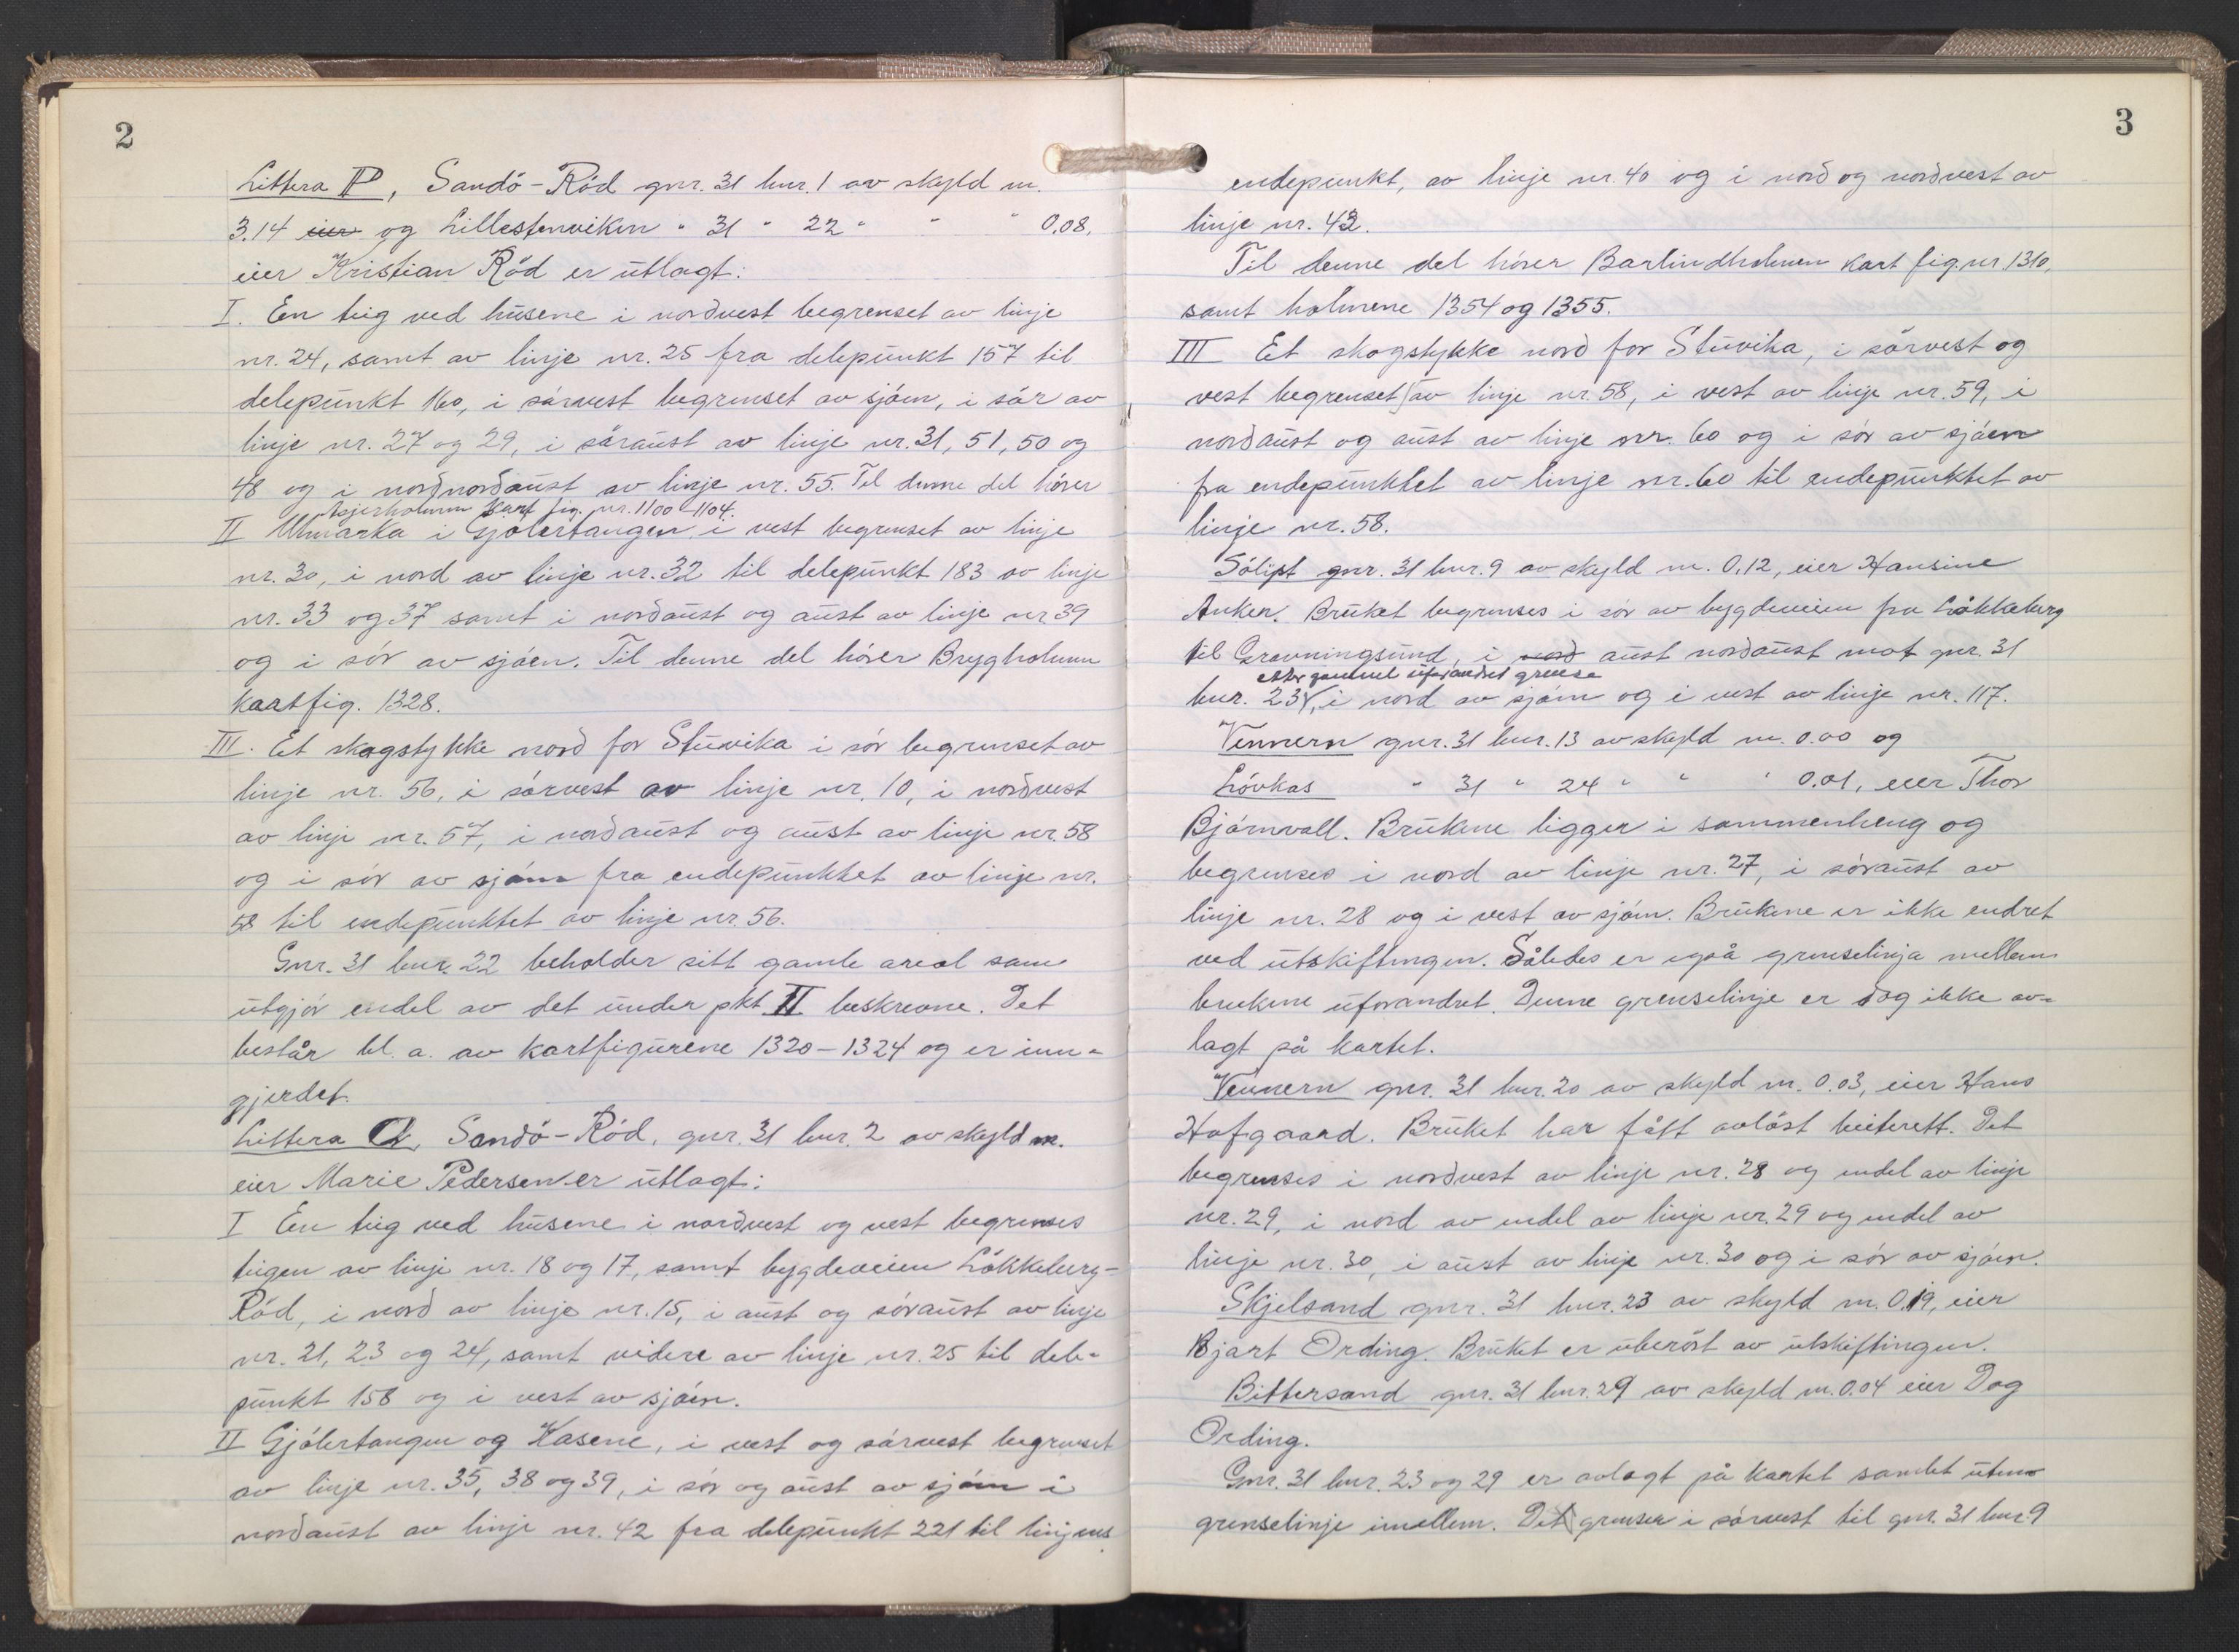 2
Littera P, Sandö-Röd gnr. 31 bnr. 1 av skyld m.
3.14 eier og Lillestenviken " 31 " 22 " " " 0.08,
eier Kristian Röd er utlagt:
I. En teig ved husene i nordvest begrenset av linje
nr. 24, samt av linje nr. 25 fra delepunkt 157 til
delepunkt 160, i sörvest begrenset av sjöen, i sör av
linje nr. 27 og 29, i söraust av linje nr. 31, 51, 50 og
48 og i nordnordaust av linje nr. 55. Til denne del hörer
Asjerholmen Kart fig. nr. 1100-1104.
II Utmarka i Gjölertangen i vest begrenset av linje
nr. 30, i nord av linje nr. 32 til delepunkt 183 av linje
nr. 33 og 37 samt i nordaust og aust av linje nr 39
og i sör av sjöen. Til denne del hörer Brygholmen
kartfig. 1328.
III. Et skogstykke nord for Stuvika i sör begrenset av
linje nr. 56, i sörvest av linje nr. 10, i nordvest
av linje nr. 57, i nordaust og aust av linje nr. 58
og i sör av sjöen fra endepunktet av linje nr.
58 til endepunktet av linje nr. 56.
Gnr. 31 bnr. 22 beholder sitt gamle areal som
utgjör endel av det under pkt. II beskrevne. Det
består bl. a. av kartfigurene 1320-1324 og er inn-
gjerdet.
Littera Q, Sandö-Röd, gnr. 31 bnr. 2 av skyld m.
eier Marie Pedersen er utlagt:
I En teig ved husene i nordvest og vest begrenses
teigen av linje nr. 18 og 17, samt bygdeveien Lökkeberg-
Röd, i nord av linje nr. 15, i aust og söraust av linje
nr. 21, 23 og 24, samt videre av linje nr. 25 til dele-
punkt 158 og i vest av sjöen.
II Gjölertangen og Kasene, i vest og sörvest begrenset
av linje nr. 35, 38 og 39, i sör og aust av sjöen i
nordaust av linje nr. 42 fra delepunkt 221 til linjens
3
endepunkt, av linje nr. 40 og i nord og nordvest av
linje nr. 43.
Til denne del hörer Barlindholmen kart fig. nr. 1310,
samt holmene 1354 og 1355.
III Et skogstykke nord for Stuvika, i sörvest og
vest begrenset av linje nr. 58, i vest av linje nr. 59, i
nordaust og aust av linje nr. 60 og i sör av sjöen
fra endepunktet av linje nr. 60 til endepunktet av
linje nr. 58.
Sölist gnr. 31 bnr. 9 av skyld m. 0,12, eier Hansine
Anker. Bruket begrenses i sör av bygdeveien fra Lökkeberg
til Gravningsund, i nord aust nordaust mot gnr. 31
etter gammel uforandret grense
bnr. 23, i nord av sjöen og i vest av linje nr. 117.
Vennern gnr. 31 bnr. 13 av skyld m. 0.00 og
Lövkas " 31 " 24 " " " 0.01, eier Thor
Björnvall. Brukene ligger i sammenheng og
begrenses i nord av linje nr. 27, i söraust av
linje nr. 28 og i vest av sjöen. Brukene er ikke endret
ved utskiftingen. Således er også grenselinja mellem
brukene uforandret. Denne grenselinje er dog ikke av-
lagt på kartet.
Vennern gnr. 31 bnr. 20 av skyld m. 0.03, eier Hans
Hofgaard. Bruket har fått avlöst beiterett. Det
begrenses i nordvest av linje nr. 28 og endel av linje
nr. 29, i nord av endel av linje nr. 29 og endel av
linje nr. 30, i aust av linje nr. 30 og i sör av sjöen.
Skjelsand gnr. 31 bnr. 23 av skyld m. 0.19, eier
Bjart Ording. Bruket er uberört av utskiftingen.
Bittersand gnr. 31 bnr. 29 av skyld m. 0.04 eier Dag
Ording.
Gnr. 31 bnr. 23 og 29 er avlagt på kartet samlet uten
grenselinje imellem. Det grenser i sörvest til gnr. 31 bnr. 9